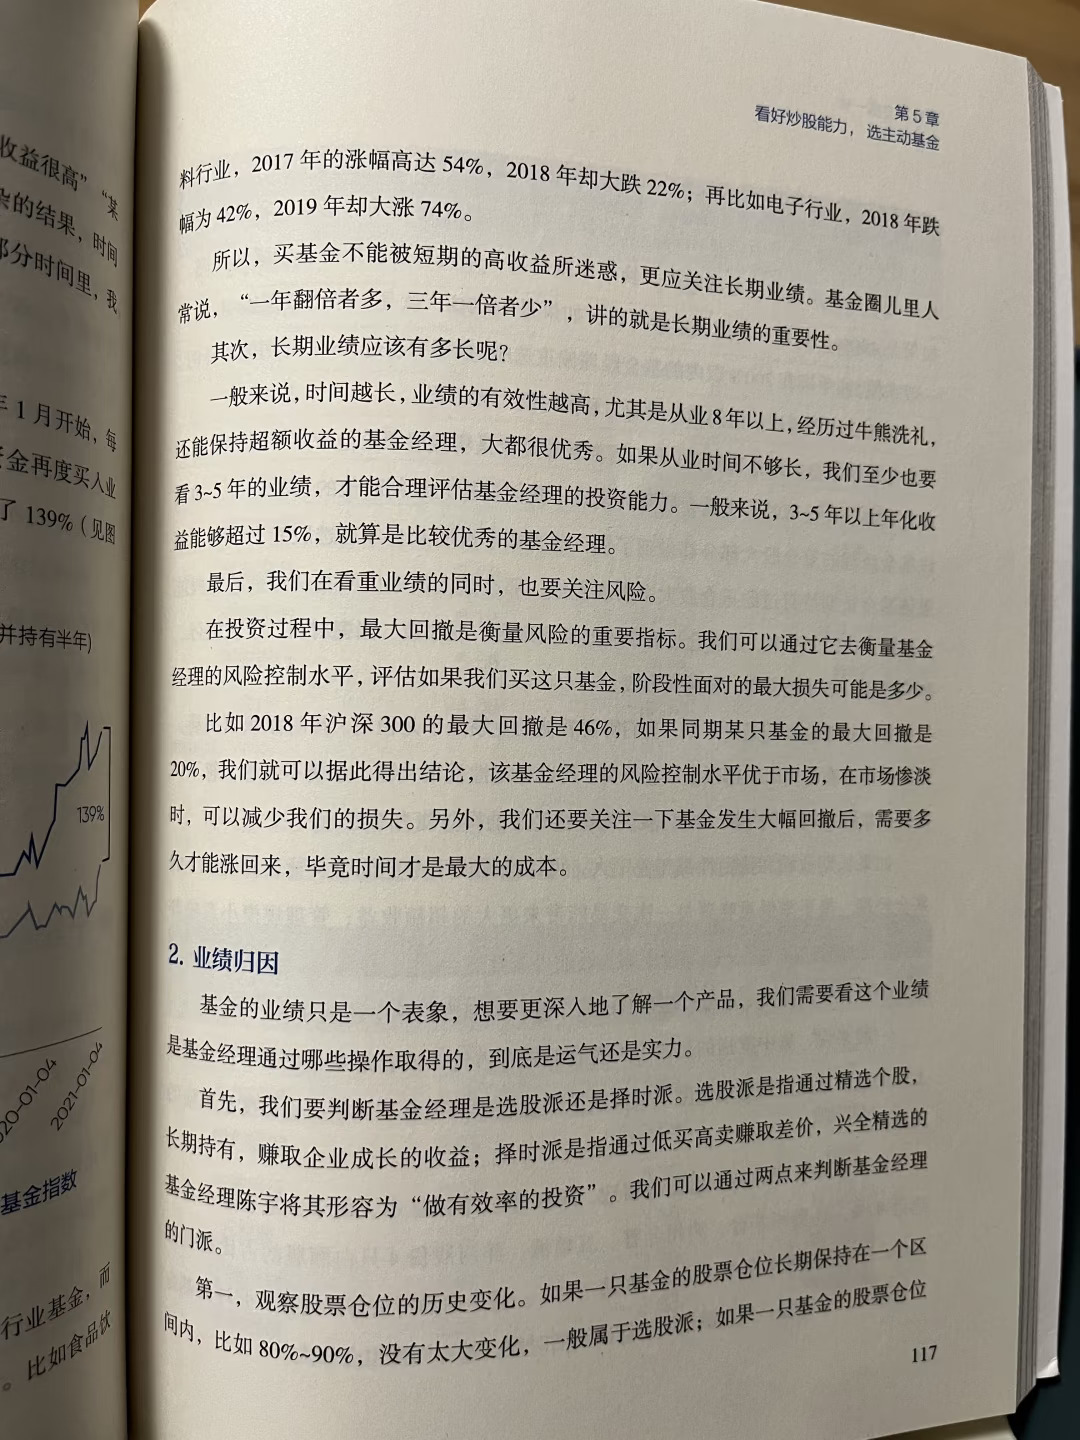 收益很高”“某
杂的结果，时间
部分时间里，我
年 1 月开始，每
资金再度买入业
了 139%（见图
并持有半年)
139%
2020-01-04
2021-01-04
基金指数
行业基金，而
。比如食品饮
第 5 章
看好炒股能力，选主动基金
料行业，2017 年的涨幅高达 54%，2018 年却大跌 22%；再比如电子行业，2018 年跌
幅为 42%，2019 年却大涨 74%。
所以，买基金不能被短期的高收益所迷惑，更应关注长期业绩。基金圈儿里人
常说，“一年翻倍者多，三年一倍者少”，讲的就是长期业绩的重要性。
其次，长期业绩应该有多长呢？
一般来说，时间越长，业绩的有效性越高，尤其是从业 8 年以上，经历过牛熊洗礼，
还能保持超额收益的基金经理，大都很优秀。如果从业时间不够长，我们至少也要
看 3~5 年的业绩，才能合理评估基金经理的投资能力。一般来说，3~5 年以上年化收
益能够超过 15%，就算是比较优秀的基金经理。
最后，我们在看重业绩的同时，也要关注风险。
在投资过程中，最大回撤是衡量风险的重要指标。我们可以通过它去衡量基金
经理的风险控制水平，评估如果我们买这只基金，阶段性面对的最大损失可能是多少。
比如 2018 年沪深 300 的最大回撤是 46%，如果同期某只基金的最大回撤是
20%，我们就可以据此得出结论，该基金经理的风险控制水平优于市场，在市场惨淡
时，可以减少我们的损失。另外，我们还要关注一下基金发生大幅回撤后，需要多
久才能涨回来，毕竟时间才是最大的成本。
2. 业绩归因
基金的业绩只是一个表象，想要更深入地了解一个产品，我们需要看这个业绩
是基金经理通过哪些操作取得的，到底是运气还是实力。
首先，我们要判断基金经理是选股派还是择时派。选股派是指通过精选个股，
长期持有，赚取企业成长的收益；择时派是指通过低买高卖赚取差价，兴全精选的
基金经理陈宇将其形容为“做有效率的投资”。我们可以通过两点来判断基金经理
的门派。
第一，观察股票仓位的历史变化。如果一只基金的股票仓位长期保持在一个区
间内，比如 80%~90%，没有太大变化，一般属于选股派；如果一只基金的股票仓位
117